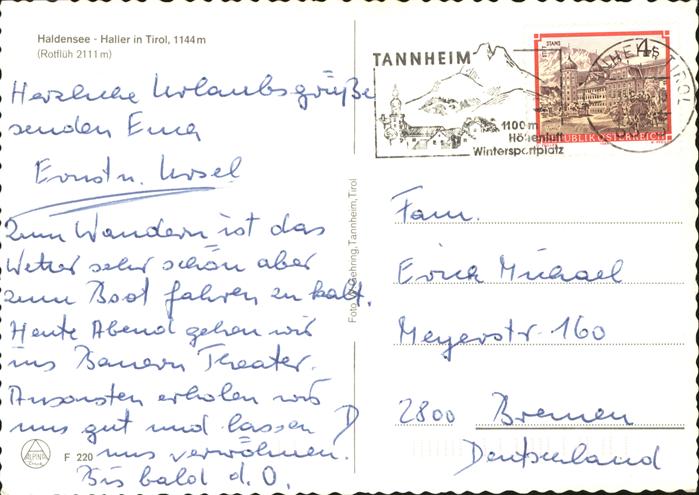 Haldensee - Haller in Tirol, 1144 m
(Rotflüh 2111 m)
Herzliche Urlaubsgrüße
senden Euch
Ernst u. Ursel
Zum Wandern ist das
Wetter sehr schön aber
zum Boot fahren zu kalt.
Heute Abend gehen wir
ins Bauern Theater.
Ansonsten erholen wir
uns gut und lassen
uns verwöhnen.
Bis bald d. O.
ALPINA
F 220
Foto Gehring, Tannheim, Tirol
TANNHEIM
1100 m
Höhenluft
Wintersportplatz
STIFT STAMS
4 S
REPUBLIK ÖSTERREICH
TANNHEIM, TIROL
Fam.
Erich Michael
Meyerstr. 160
2800 Bremen
Deutschland